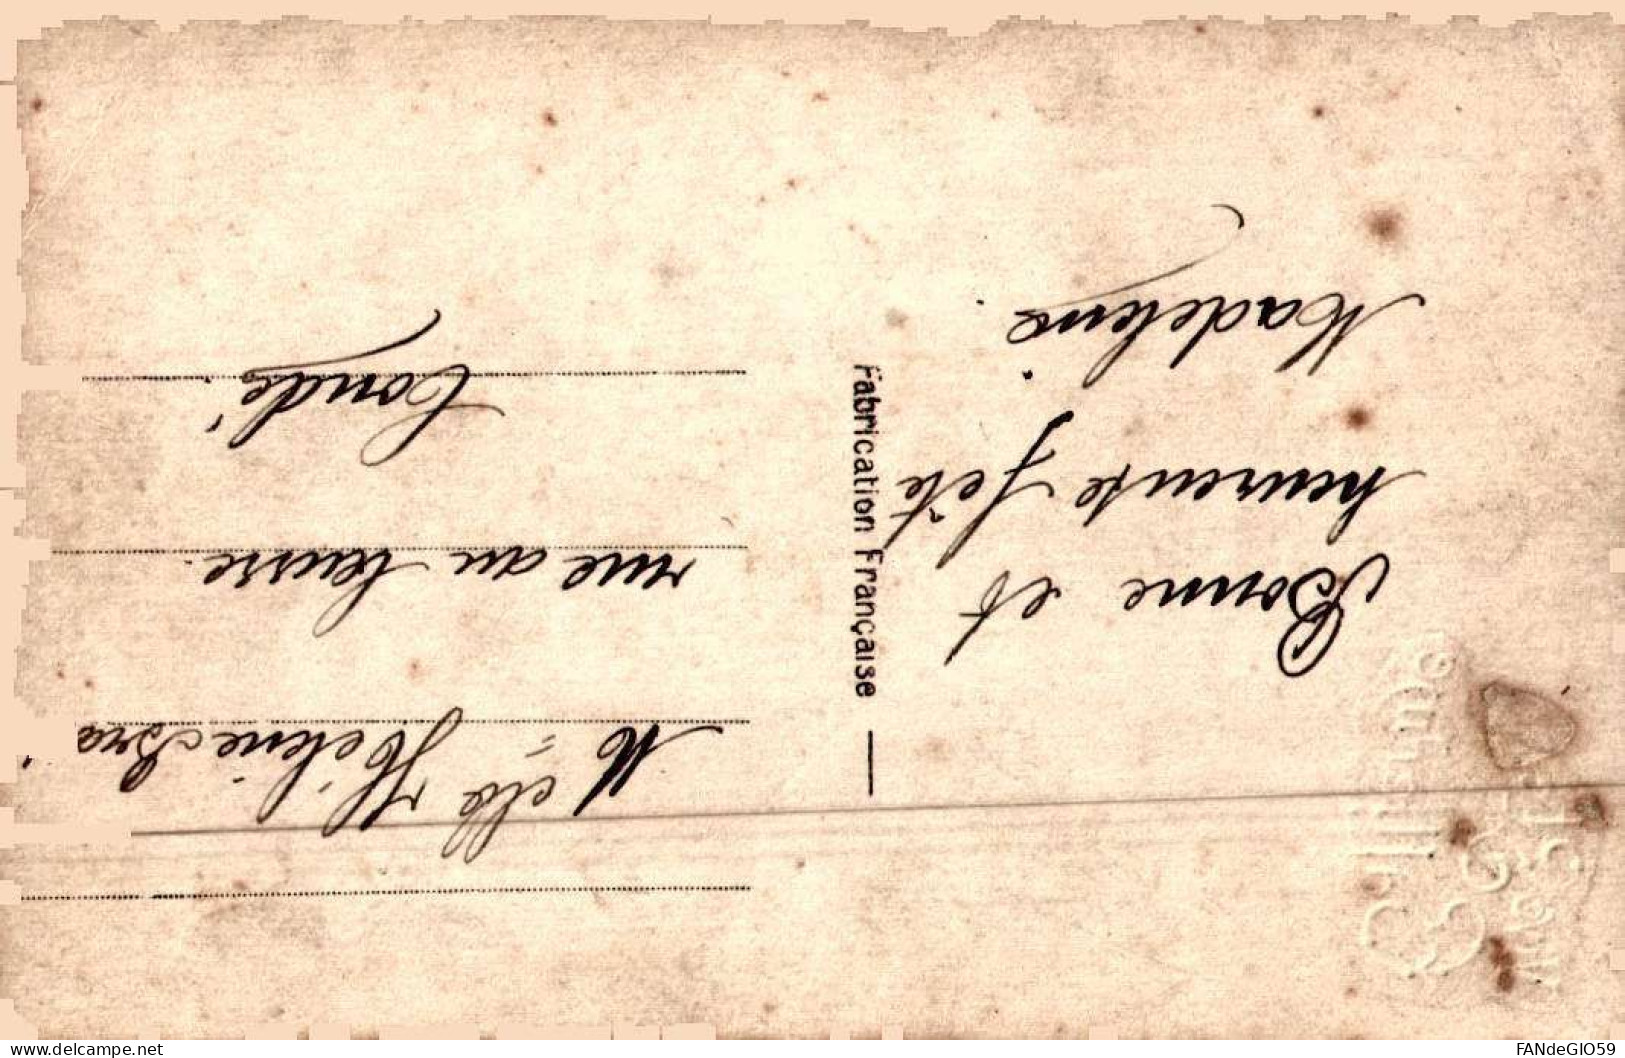 Bonne et
heureuse fête
Madeleine.
Fabrication Française
M elle Hélène
rue au
Condé
www.delcampe.net
FANdeGIO59